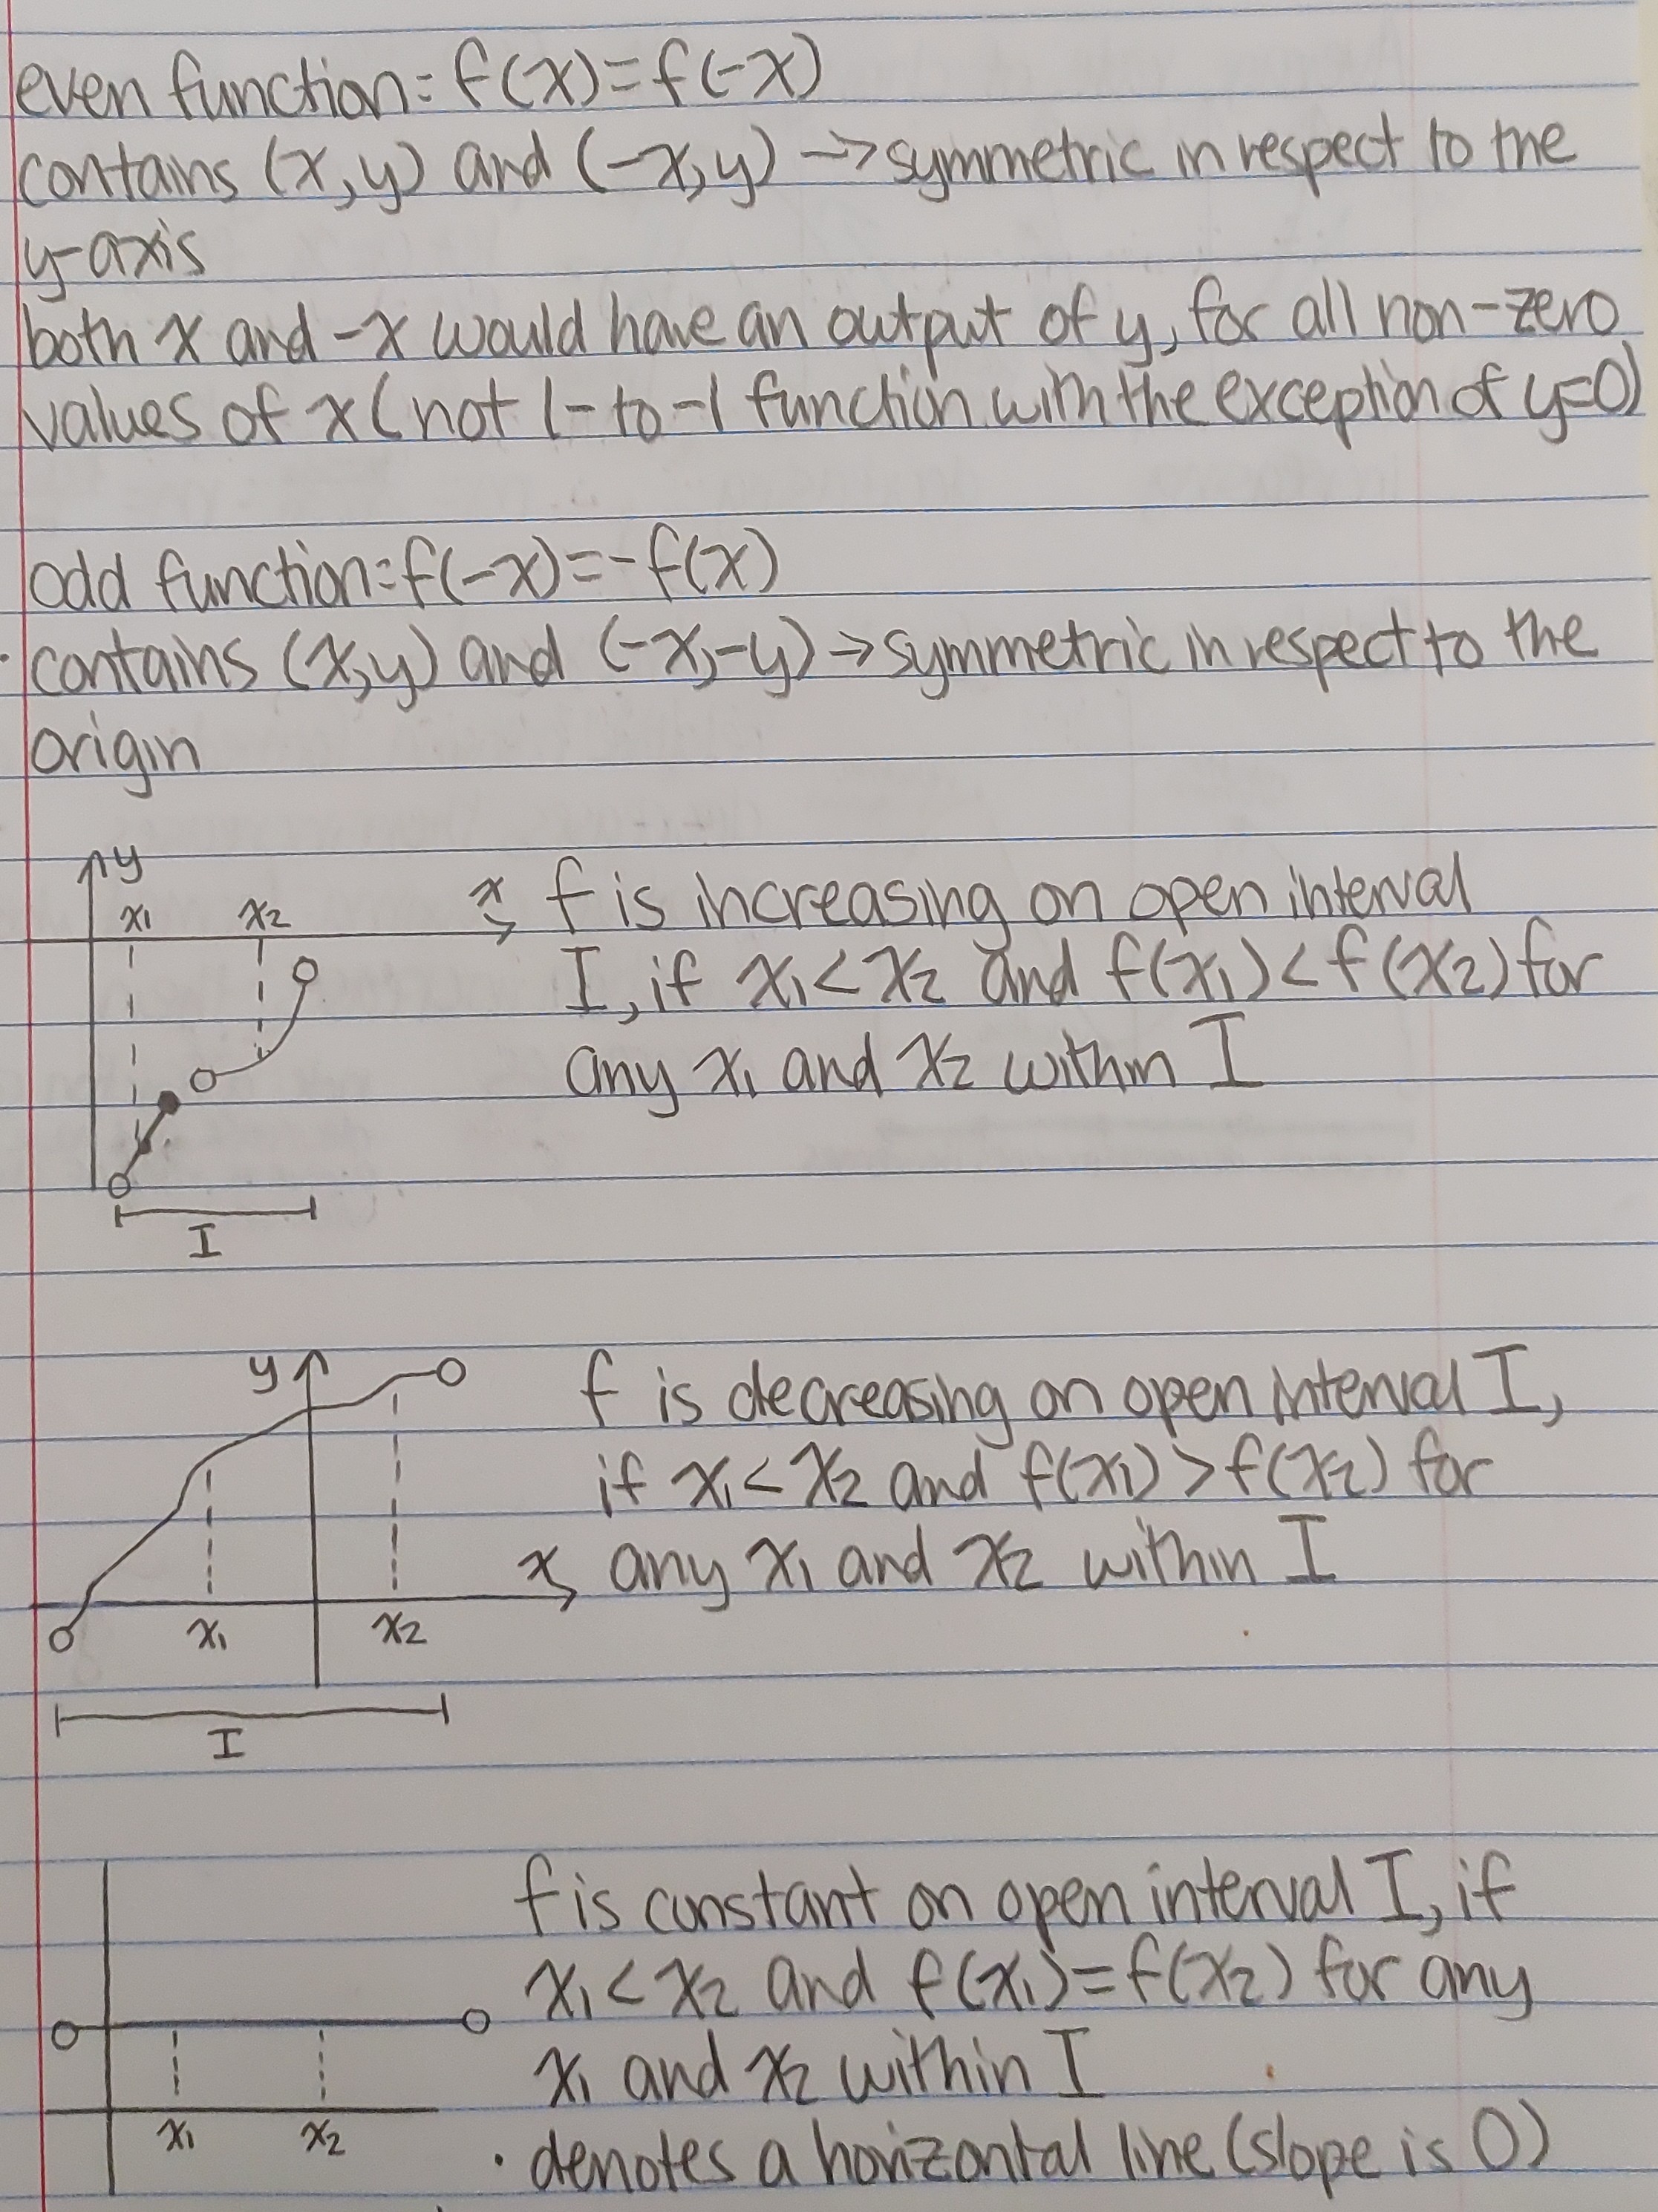 even function: f(x)=f(-x)
contains (x,y) and (-x,y) → symmetric in respect to the
y-axis
both x and -x would have an output of y, for all non-zero
values of x (not 1-to-1 function with the exception of y=0)
odd function: f(-x)=-f(x)
· contains (x,y) and (-x,-y) → symmetric in respect to the
origin
y
x1 x2 x
f is increasing on open interval
I, if x1<x2 and f(x1)<f(x2) for
any x1 and x2 within I
I
y
f is decreasing on open interval I,
if x1<x2 and f(x1)>f(x2) for
any x1 and x2 within I
x
x1 x2
I
f is constant on open interval I, if
x1<x2 and f(x1)=f(x2) for any
x1 and x2 within I
x1 x2
· denotes a horizontal line (slope is 0)